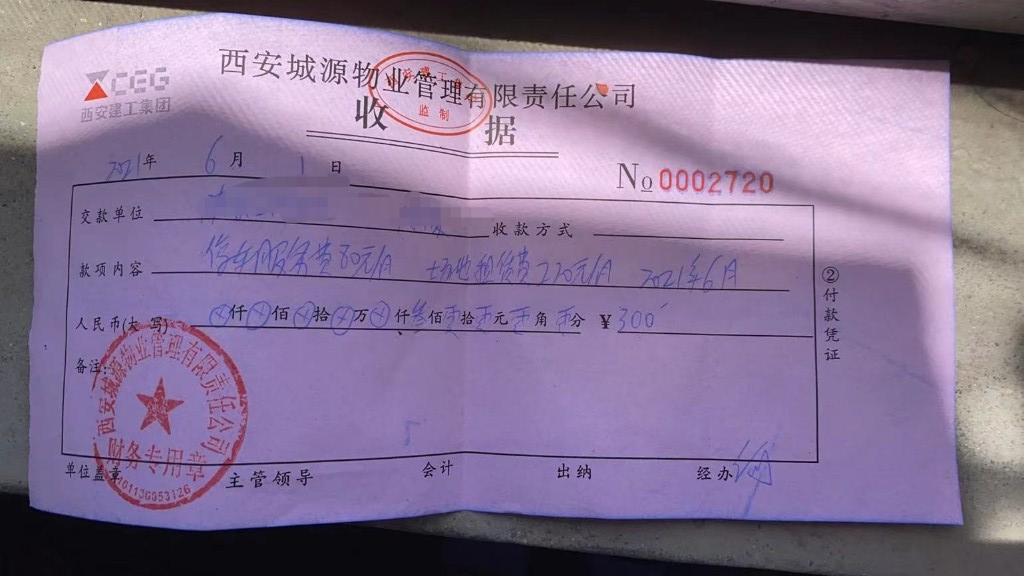 CEG
西安建工集团
西安城源物业管理有限责任公司
监制
收据
2021年 6月 1日
No 0002720
交款单位 收款方式
款项内容 停车服务费80元/月 场地租赁费220元/月 2021年6月
人民币(大写) ⊗仟⊗佰⊗拾⊗万⊗仟叁佰零拾零元零角零分 ¥300
备注:
②付款凭证
西安城源物业管理有限责任公司
财务专用章
单位盖章 主管领导 会计 出纳 经办